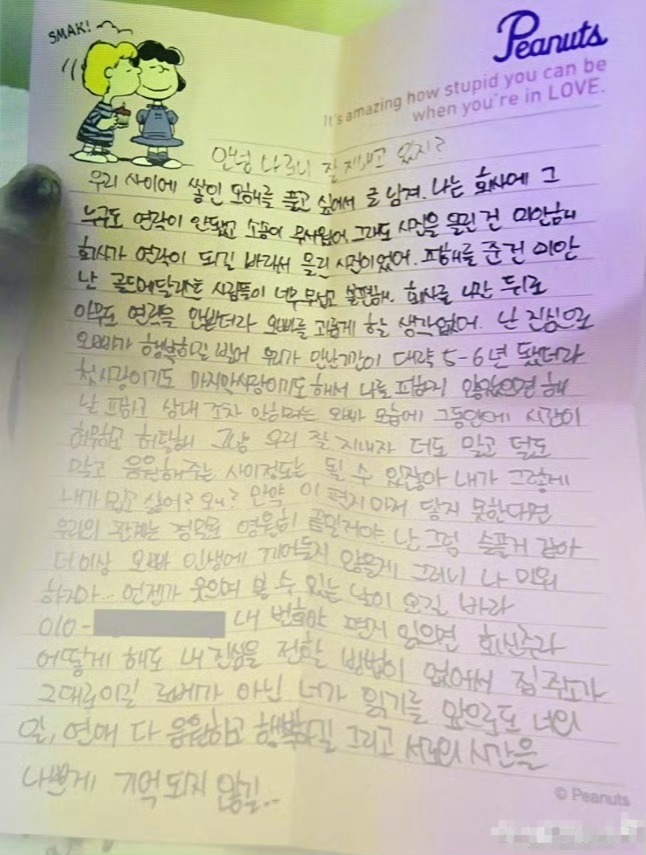 SMAK!
Peanuts
It's amazing how stupid you can be
when you're in LOVE.
안녕 나르니 잘 지내고 있지?
우리 사이에 쌓인 오해를 풀고 싶어서 글 남겨. 나는 회사에 그
누구도 연락이 안됐고 소송이 무서웠어. 그래도 사진을 올린 건 미안해
회사가 연락이 되길 바라서 올린 사진이었어. 피해를 준건 미안
난 골드메달리스트 사람들이 너무 무섭고 불편해. 회사를 나간 뒤로
아무도 연락을 안받더라 오빠를 괴롭게 할 생각없어. 난 진심으로
오빠가 행복하길 빌어 우리가 만난기간이 대략 5-6년 됐더라
첫사랑이기도 마지막사랑이기도 해서 나를 피하지 않았으면 해
날 피하고 상대 조차 안하려는 오빠 모습에 그동안에 시간이
허무하고 허탈해 그냥 우리 잘 지내자 더도 말고 덜도
말고 응원해주는 사이정도는 될 수 있잖아 내가 그렇게
내가 밉고 싫어? 왜? 만약 이 편지마저 닿지 못한다면
우리의 관계는 정말로 영원히 끝일거야 난 그럼 슬플거 같아
더이상 오빠 인생에 끼어들지 않을게 그러니 나 미워
하지마.. 언젠가 웃으며 볼 수 있는 날이 오길 바라
010- 내 번호야 편지 읽으면 회신주라
어떻게 해도 내 진심을 전할 방법이 없어서 집 주소가
그대로이길 로베가 아닌 너가 읽기를 앞으로도 너의
일, 연애 다 응원하고 행복하길 그리고 서로의 시간을
나쁘게 기억되지 않길..
© Peanuts